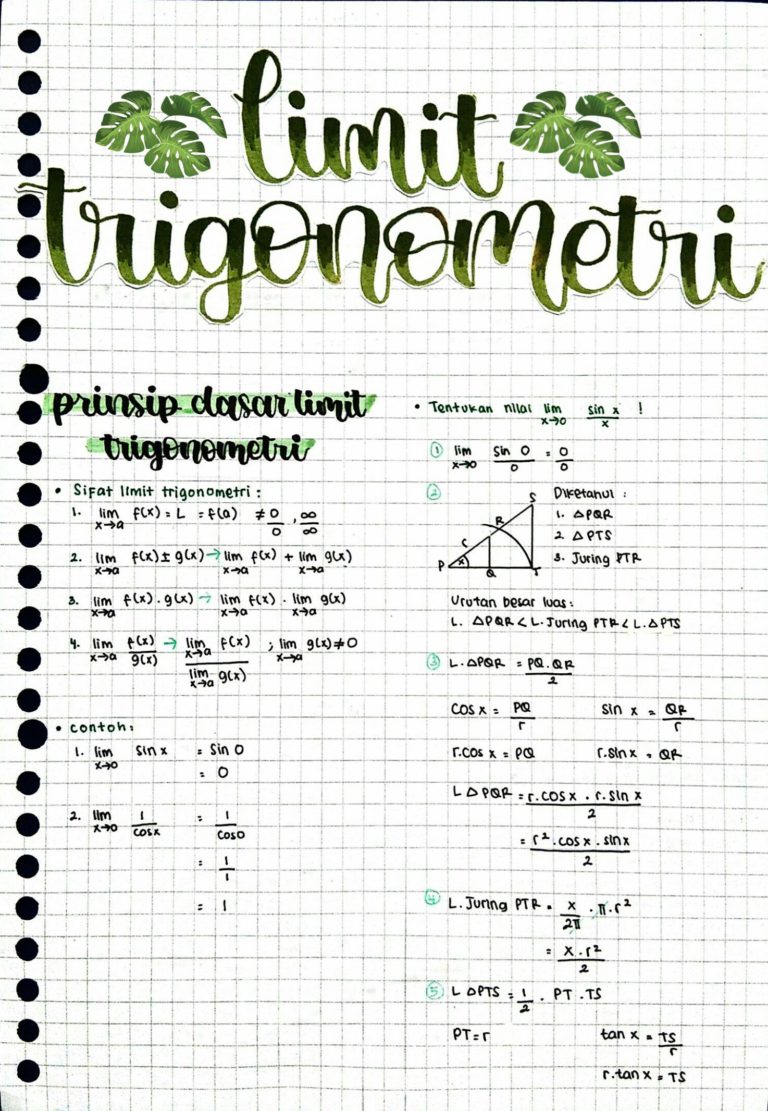 limit
trigonometri
prinsip dasar limit
trigonometri
• Sifat limit trigonometri :
1. lim x→a f(x) = L = f(a) ≠ 0/0 , ∞/∞
2. lim x→a f(x) ± g(x) → lim x→a f(x) + lim x→a g(x)
3. lim x→a f(x) . g(x) → lim x→a f(x) . lim x→a g(x)
4. lim x→a f(x)/g(x) → lim x→a f(x) / lim x→a g(x) ; lim x→a g(x) ≠ 0
• contoh:
1. lim x→0 sin x = sin 0
= 0
2. lim x→0 1/cos x = 1/cos 0
= 1/1
= 1
• Tentukan nilai lim x→0 sin x/x !
① lim x→0 sin 0/0 = 0/0
②
S
R
r
P
x
Q
T
Diketahui :
1. △PQR
2. △PTS
3. Juring PTR
Urutan besar luas:
L. △PQR < L. Juring PTR < L. △PTS
③ L. △PQR = PQ . QR/2
cos x = PQ/r sin x = QR/r
r.cos x = PQ r.sin x = QR
L △PQR = r.cos x . r.sin x/2
= r² . cos x . sin x/2
④ L. Juring PTR = x/2π . π . r²
= x . r²/2
⑤ L △PTS = 1/2 . PT . TS
PT = r tan x = TS/r
r.tan x = TS